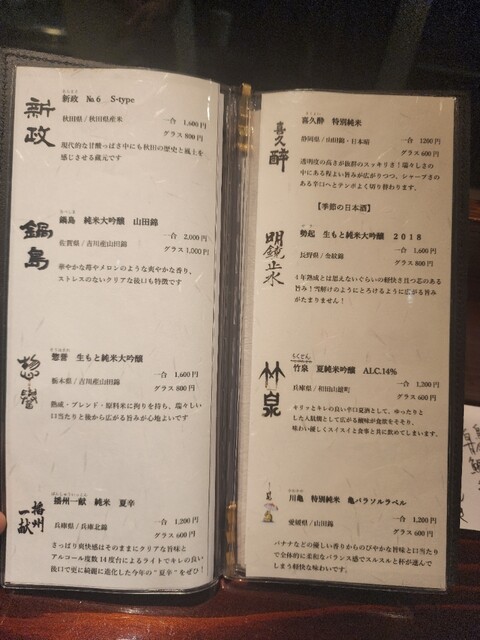 新政
新政 No.6 S-type
秋田県/秋田県産米
一合 1,600円
グラス 800円
現代的な甘酸っぱさ中にも秋田の歴史と風土を
感じさせる蔵元です
鍋島
鍋島 純米大吟醸 山田錦
佐賀県/吉川産山田錦
一合 2,000円
グラス 1,000円
華やかな苺やメロンのような爽やかな香り、
ストレスのないクリアな後口も特徴です
惣誉
惣誉 生もと純米大吟醸
栃木県/吉川産山田錦
一合 1,600円
グラス 800円
熟成・ブレンド・原料米に拘りを持ち、瑞々しい
口当たりと後から広がる旨みが心地よいです
播州一献
播州一献 純米 夏辛
兵庫県/兵庫北錦
一合 1,200円
グラス 600円
さっぱり爽快感はそのままにクリアな旨味と
アルコール度数14度台によるライトでキレの良い
後口で更に綺麗に進化した今年の"夏辛"をぜひ!
喜久酔
喜久酔 特別純米
静岡県/山田錦・日本晴
一合 1200円
グラス 600円
透明度の高さが抜群のスッキリさ!瑞々しさの
中にある程よい旨みが広がりつつ、シャープさの
ある辛口へとテンポよく切り替わります。
【季節の日本酒】
明鏡止水
勢起 生もと純米大吟醸 2018
長野県/金紋錦
一合 1,600円
グラス 800円
4年熟成とは思えないぐらいの軽快さ且つ芯のある
旨み!雪解けのようにとろけるように広がる旨み
がたまりません!
竹泉
ちくせん
竹泉 夏純米吟醸 ALC.14%
兵庫県/和田山雄町
一合 1,200円
グラス 600円
キリッとキレの良い辛口夏酒として、ゆったりと
した人肌燗として広がる酸味が食欲をそそり、
味わい優しくスイスイと食事と共に飲めてしまいます。
川亀 特別純米 亀パラソルラベル
愛媛県/山田錦
一合 1,200円
グラス 600円
バナナなどの優しい香りからのびやかな旨味と口当たり
で全体的に柔和なバランス感でスルスルと杯が進んで
しまう軽快な味わいです。